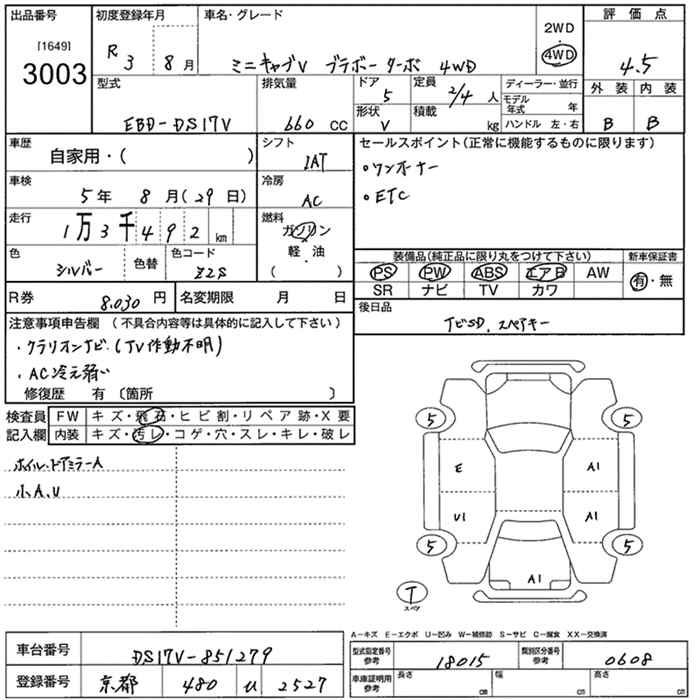 出品番号 初度登録年月 車名・グレード 評価点
[1649] 3003 R3 8月 ミニキャブV ブラボーターボ 4WD 2WD 4WD 4.5
型式 排気量 ドア 5 定員 2/4人 ディーラー・並行 外装 内装
EBD-DS17V 660 CC 形状 V 積載 kg モデル年式 年 B B
ハンドル 左・右
車歴 自家用・( ) シフト IAT セールスポイント(正常に機能するものに限ります)
車検 5年 8月(29日) 冷房 AC ・ワンオーナー
・ETC
走行 1万3千492km 燃料 ガソリン 軽・油 ( )
色 シルバー 色替 色コード
装備品(純品に限り丸をつけて下さい) 新車保証書
PS PW ABS エアB AW 有・無
SR ナビ TV カワ
R券 8.030円 名変期限 月 日 後日品
ナビSD、スペアキー
注意事項申告欄 (不具合内容等は具体的に記入して下さい)
・クラリオンナビ(TV作動不明)
・AC冷え弱い
修復歴 有〔箇所 〕
検査員 FW キズ・飛石・ヒビ割・リペア跡・X要
記入欄 内装 キズ・汚レ・コゲ・穴・スレ・キレ・破レ
ホイル・ドアミラーA
小A、U
5 5
E A1
U1 A1
5 5
A1
T
スペア
A-キズ E-エクボ U-凹み W-補修跡 S-サビ C-腐食 XX-交換済
車台番号 DS17V-851279 型式指定番号 参考 18015 類別区分番号 参考 0608
登録番号 京都 480 2527 車庫証明用 参考 長さ cm 幅 cm 高さ cm